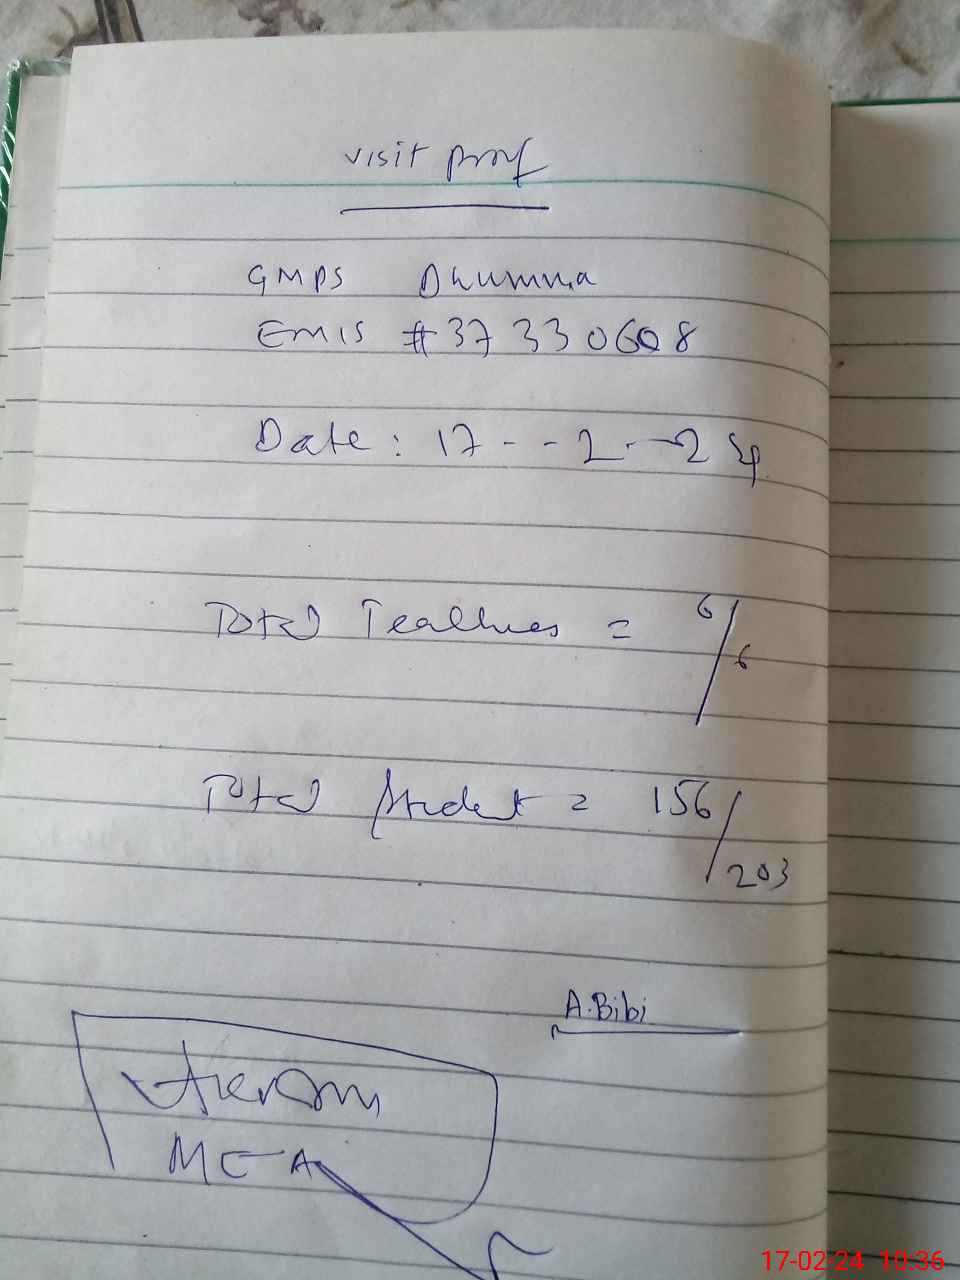 visit proof
GMPS Dhumma
EMIS #37330608
Date: 17--2-24
Total Teachers = 6/6
Total Student = 156/203
A.Bibi
Akram
MEA
17-02-24 10:36